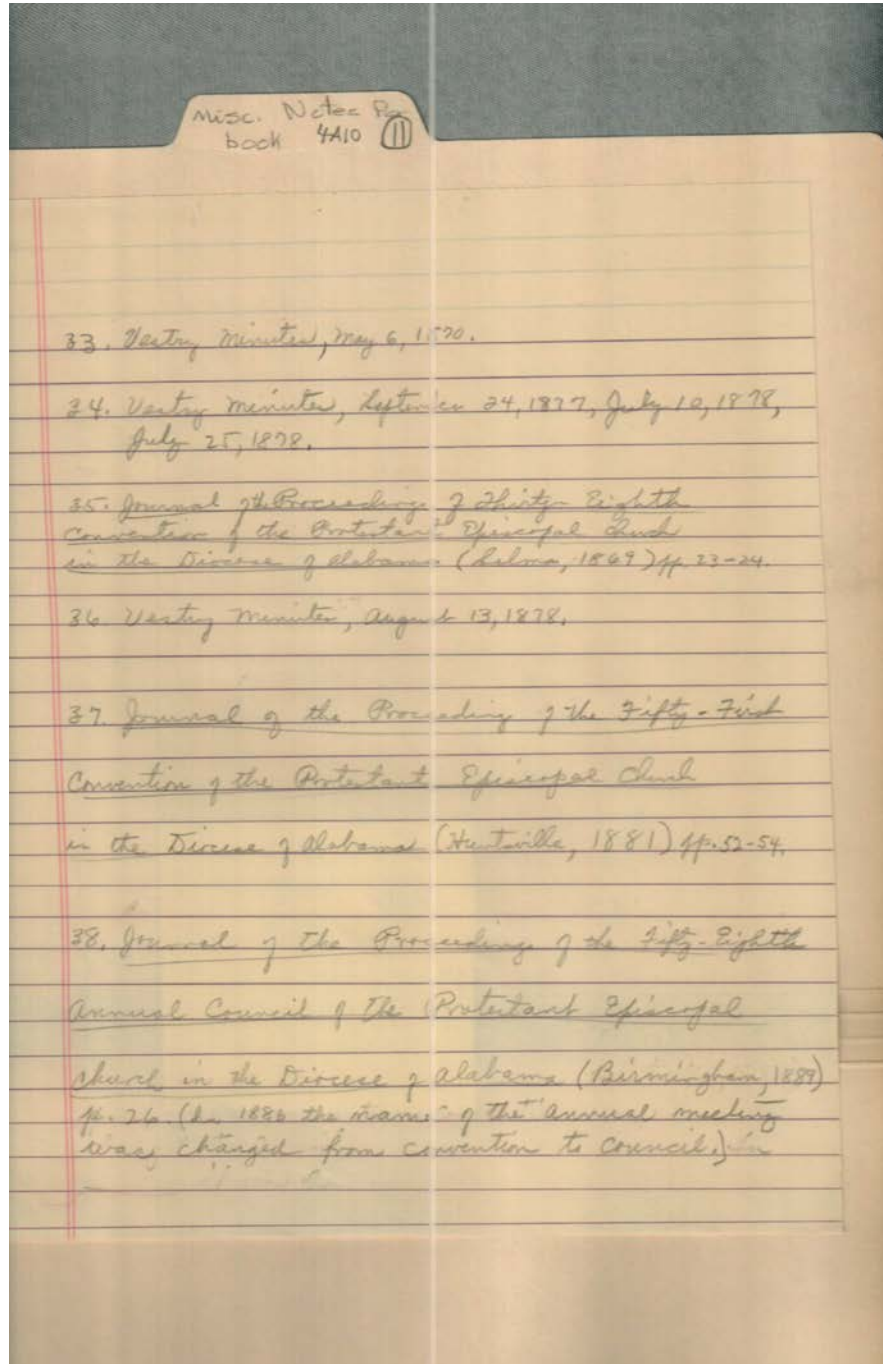 Misc. Notes For
book 4A10 11
33. Vestry Minutes, May 6, 1870.
34. Vestry Minutes, September 24, 1877, July 10, 1878,
July 25, 1878.
35. Journal of the Proceedings of Thirty-Eighth
Convention of the Protestant Episcopal Church
in the Diocese of Alabama (Selma, 1869) pp. 23-24.
36. Vestry Minutes, August 13, 1878.
37. Journal of the Proceeding of the Fifty-First
Convention of the Protestant Episcopal Church
in the Diocese of Alabama (Huntsville, 1881) pp. 52-54.
38. Journal of the Proceedings of the Fifty-Eighth
Annual Council of the Protestant Episcopal
Church in the Diocese of Alabama (Birmingham, 1889)
p. 26. (In 1886 the name of the annual meeting
was changed from convention to council.) In